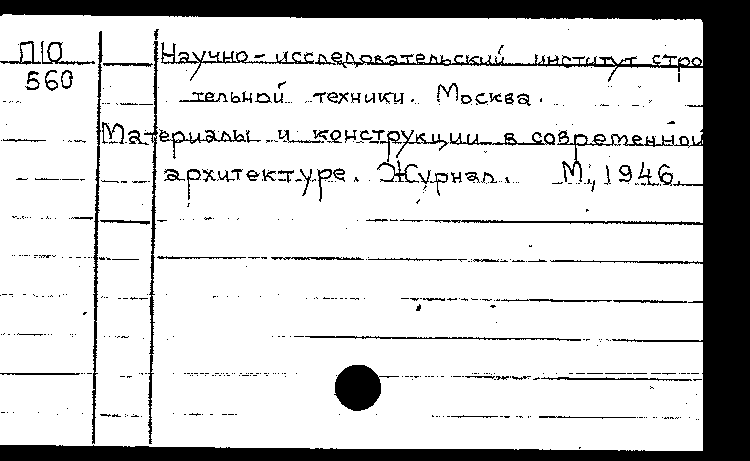 П10
560
Научно-исследовательский институт стро
тельной техники. Москва.
Материалы и конструкции в современной
архитектуре. Журнал. М., 1946.